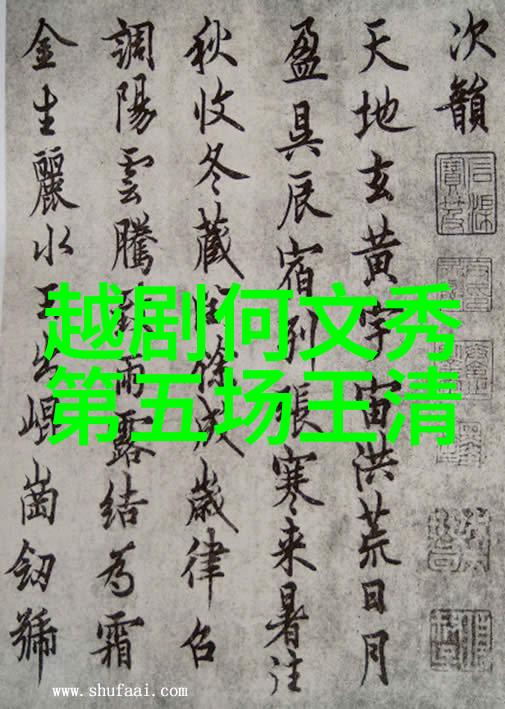 次韻
天地玄黄宇宙洪荒日月
盈昃辰宿列張寒来暑往
秋收冬藏餘成歲律召
調陽雲騰雨露結為霜
金生麗水玉出崐崗劒號
越剧何文秀
第五场王清
www.shufaai.com